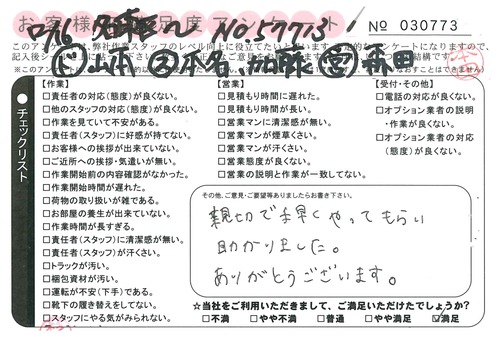 お客様満足度アンケート
№ 030773
NO.57713
山本
本名・加藤
森田
チェックリスト
【作業】
□責任者の対応(態度)が良くない。
□他のスタッフの対応(態度)が良くない。
□作業を見ていて不安がある。
□責任者(スタッフ)に好感が持てない。
□お客様への挨拶が出来ていない。
□ご近所への挨拶・気遣いが無い。
□作業開始前の内容確認がなかった。
□作業開始時間が遅れた。
□荷物の取り扱いが雑である。
□お部屋の養生が出来ていない。
□作業時間が長すぎる。
□責任者(スタッフ)に清潔感が無い。
□責任者(スタッフ)が汗くさい。
□トラックが汚い。
□梱包資材が汚い。
□運転が不安(下手)である。
□靴下の履き替えをしてない。
□スタッフにやる気がみられない。
【営業】
□見積もり時間に遅れた。
□見積もり時間が長い。
□営業マンに清潔感が無い。
□営業マンが煙草くさい。
□営業マンが汗くさい。
□営業態度が良くない。
□営業の説明と作業が一致してない。
【受付・その他】
□電話の対応が良くない。
□オプション業者の説明
・作業が良くない。
□オプション業者の対応
(態度)が良くない。
その他、ご意見・ご要望等ありましたらお書き下さい。
親切で手早くやってもらい
助かりました。
ありがとうございます。
☆当社をご利用いただきまして、ご満足いただけたでしょうか?
□不満 □やや不満 □普通 □やや満足 ☑満足